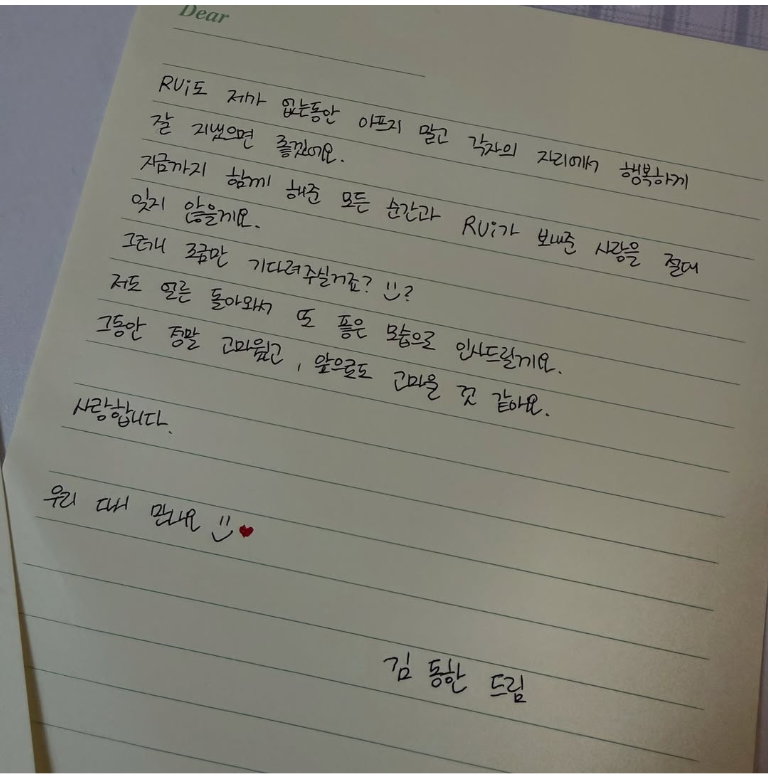 Dear
RUi도 저가 없는동안 아프지 말고 각자의 자리에서 행복하게
잘 지냈으면 좋겠어요.
지금까지 함께 해준 모든 순간과 RUi가 보내준 사랑을 절대
잊지 않을게요.
그러니 조금만 기다려주실거죠? :)?
저도 얼른 돌아와서 또 좋은 모습으로 인사드릴게요.
그동안 정말 고마웠고, 앞으로도 고마울 것 같아요.
사랑합니다.
우리 다시 만나요 :) ♥
김동한 드림